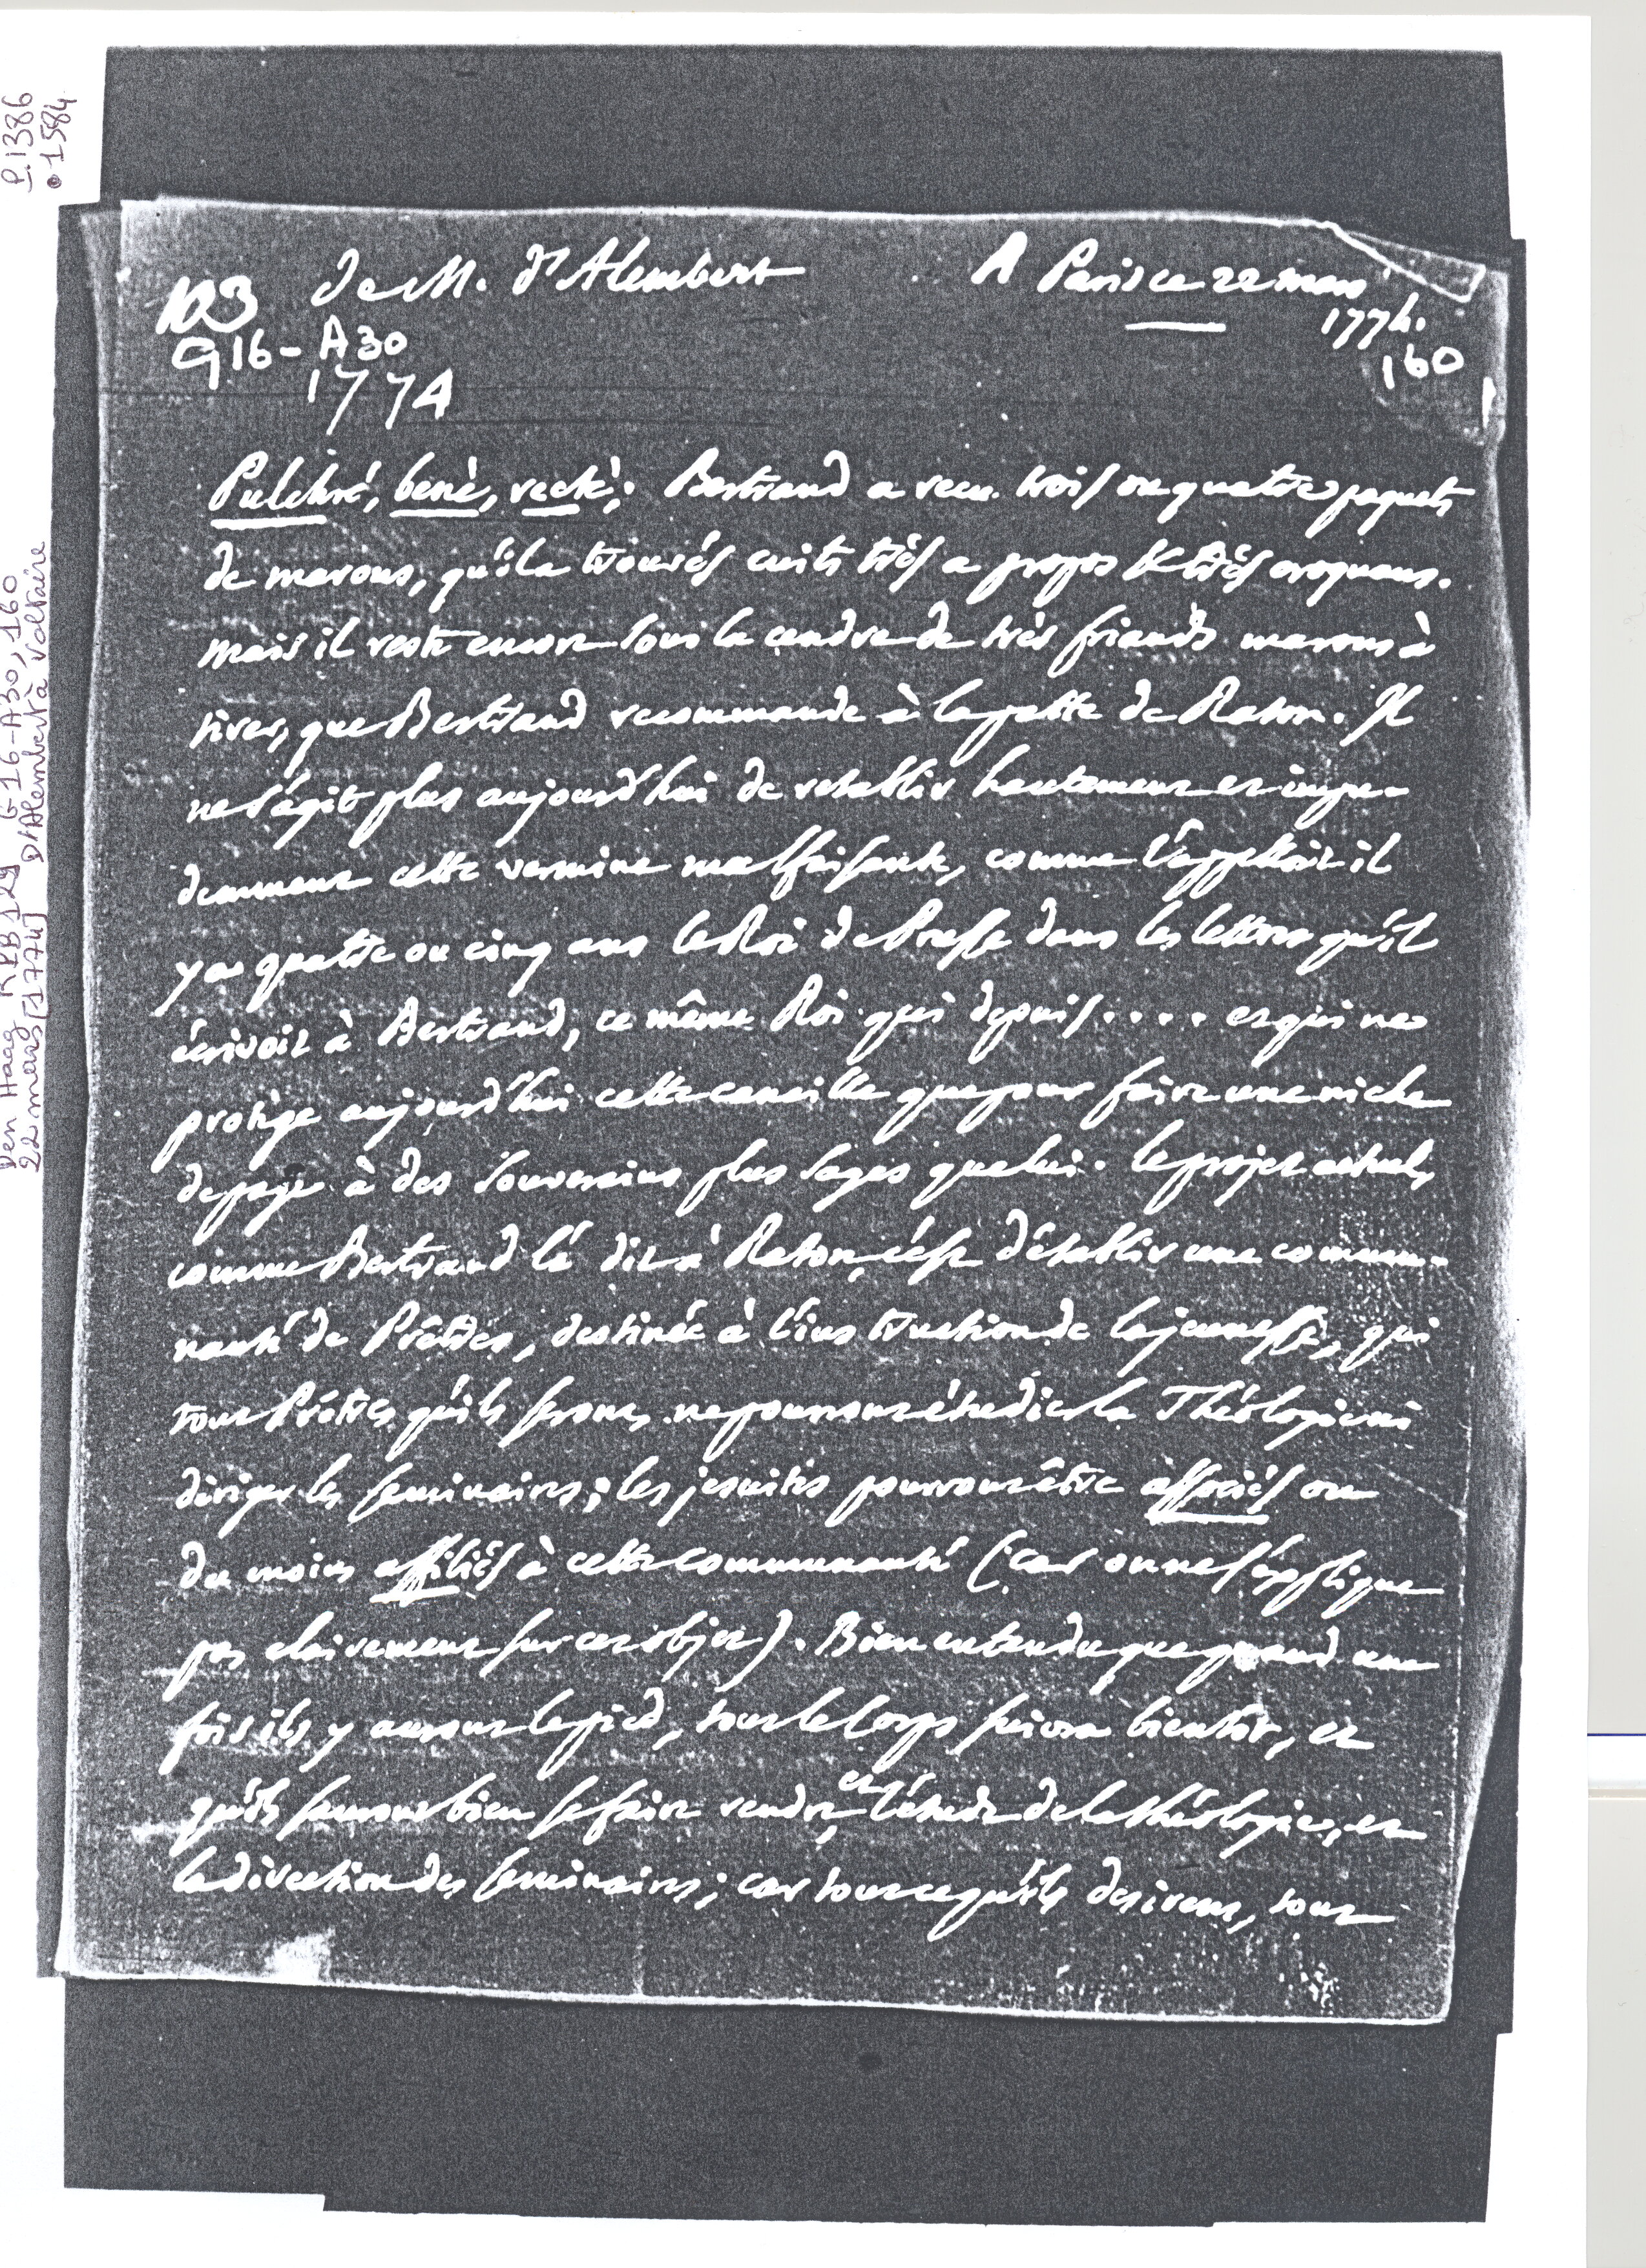 P.1386
• 1584
Den Haag KBB 129 G 16-A30, 160
22 mars [1774] D'Alembert à Voltaire
103 de M. d'Alembert A Paris ce 22 mars
1774.
G16-A30
160
1774
Pulchré, benè, rectè; Bertrand a recu trois ou quatre paquets
de marons, qu'il a trouvés cuits très a propos & très croquans.
mais il reste encore sous la cendre de très friands marons à
tirer, que Bertrand recommande à la patte de Raton. Il
ne s'agit plus aujourd'hui de retablir hautement et impu-
demment cette vermine malfaisante, comme l'appelloit il
y a quatre ou cinq ans le Roi de Prusse dans les lettres qu'il
écrivoit à Bertrand, ce même Roi qui depuis.... et qui ne
protége aujourd'hui cette canaille que pour faire une niche
de page à des souverains plus sages que lui. le projet actuel,
comme Bertrand l'a dit à Raton, c'est d'établir une commu-
nauté de Prêtres, destinée à l'instruction de la jeunesse, qui
tout Prêtres qu'ils seront, ne pourront étudier la Théologie ni
diriger les seminaires; les jesuites pourront être associés ou
du moins affiliés à cette communauté (car on ne s'explique
pas clairement sur cet objet). Bien entendu que quand une
fois ils y auront le pied, tout le corps suivra bientôt, et
qu'ils sauront bien se faire rendre, et l'étude de la théologie, et
la direction des seminaires; car tout ce qu'ils desirent, tout